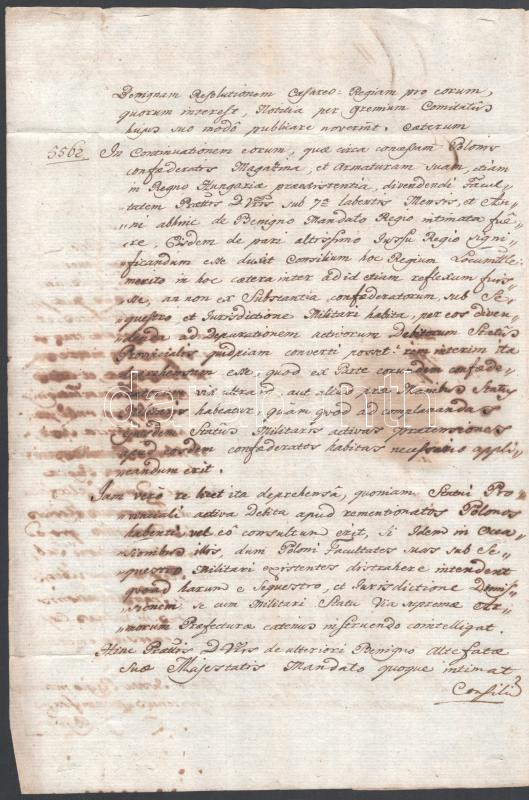 Benignam Resolutionem Caesareo: Regiam pro eorum,
quorum interest, Notitia per gremium Comitatus
hujus suo modo publicare noverint. Caeterum
5562 In Continuationem eorum, quae circa concessam Polonis
confoederatis Magazina, et Armaturam suam, etiam
in Regno Hungariae praeexistentia, divendendi Facul„
„tatem Praettis D Vris sub 7a labentis Mensis, et An„
„ni abhinc de Benigno Mandato Regio intimata fue„
„re, Eisdem de pari altissimo Jussu Regio signi„
„ficandum esse duxit Consilium hoc Regium Locumtle:
merito in hoc caetera inter ad id etiam reflexum fuis„
„se, an non ex Substantia confoederatorum, sub Se„
„questro, et Jurisdictione Militari habita, per eos diven„
„denda ad Depurationem activorum Debitorum Status
Provincialis quidpiam converti possit: rem interim ita
deprehensam esse, quod ex Parte eorundem confoede„
vix ultra id, aut aliud prae Manibus Status
habeatur, quam quod ad complanandas
ejusdem Status Militaris activas praetensiones
apud eosdem confoederatos habitas necessario appli„
„candum erit.
Jam vero re licet ita deprehensa, quoniam Statui Pro„
„vinciali activa Debita apud rementionatos Polonos
habenti vel eo consultum erit, si Idem in Occa„
„sionibus illis, dum Poloni Facultates suas sub Se„
„questro Militari existentes distrahere intendent
quoad harum e Sequestro, et Jurisdictione Dimis„
„sionem se cum Militari Statu via supremae Ar„
„morum Praefecturae eatenus insistendo cointelligat.
Hinc Praettis D Vris de ulteriori Benigno altefatae
Suae Majestatis Mandato quoque intimat
Consiliu
darabanth